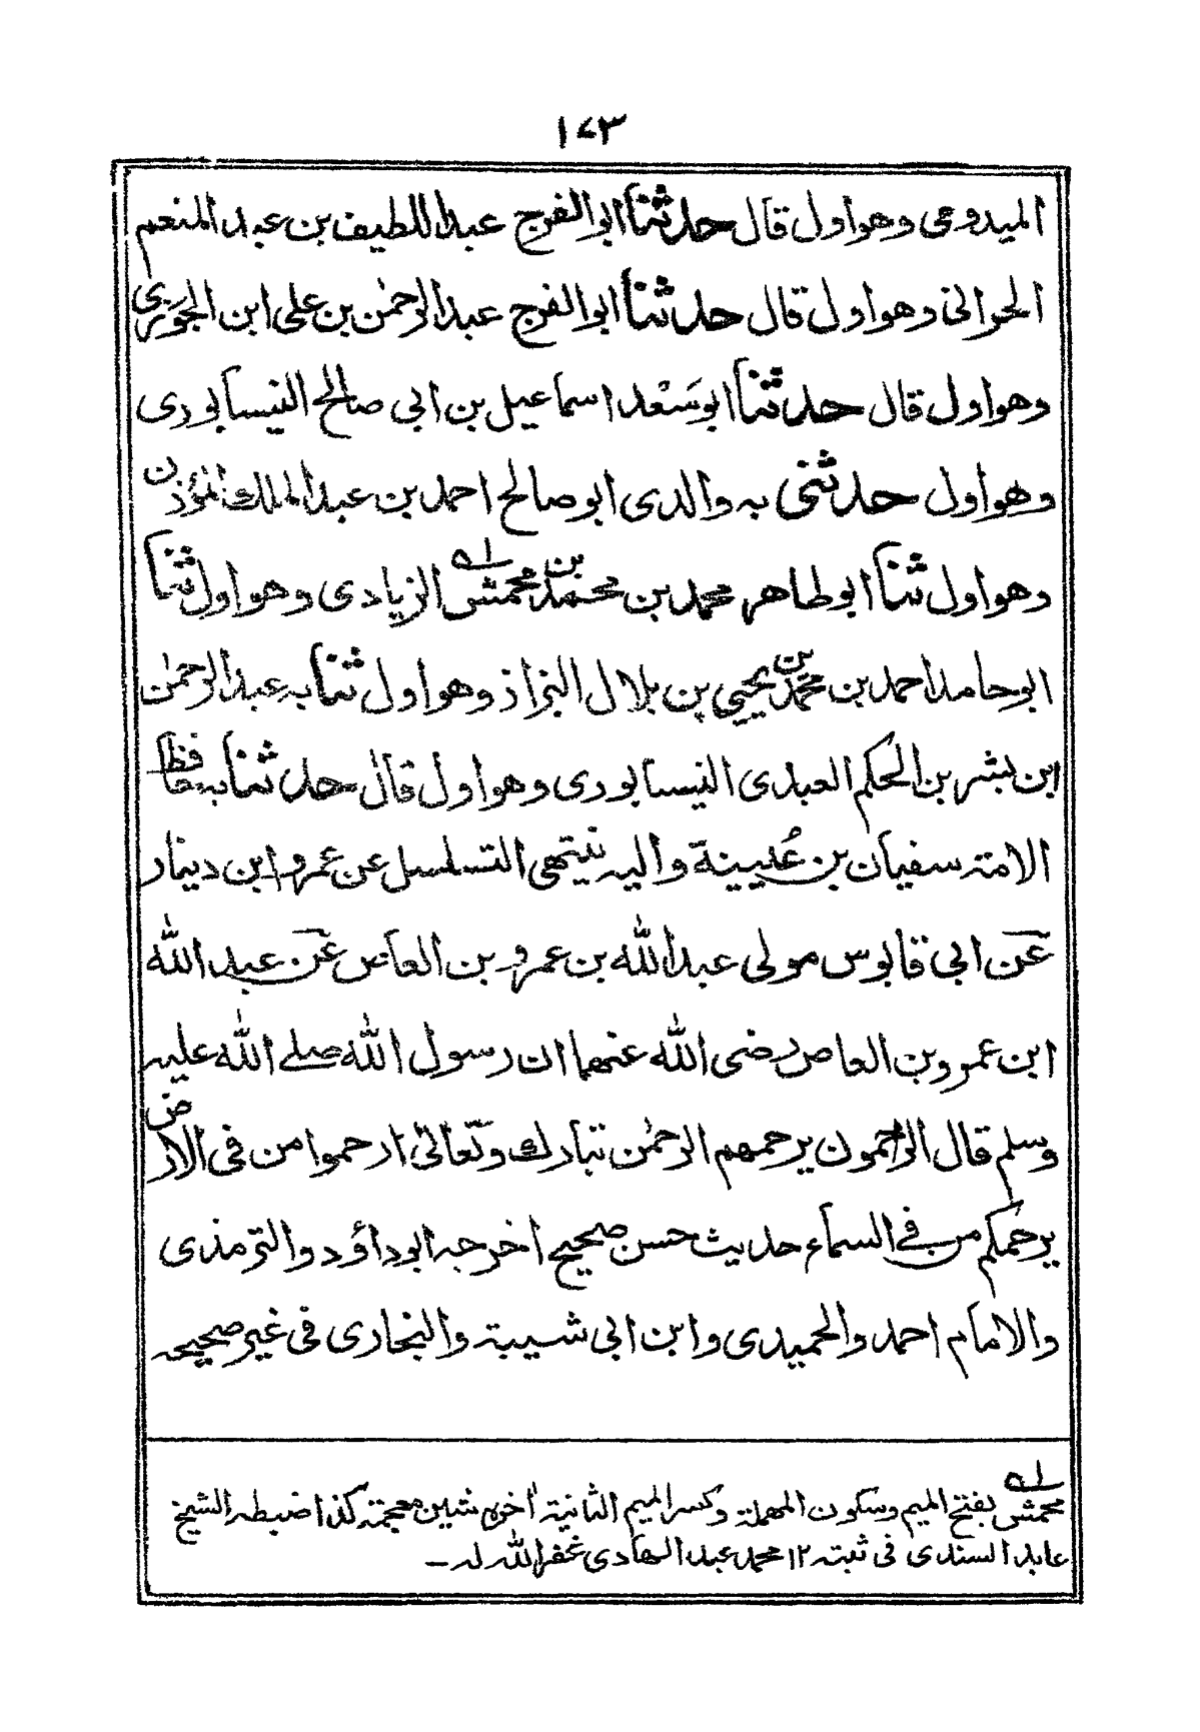 ١٧٣
الميدومى وهو اول قال حدثنا ابو الفرج عبد اللطيف بن عبد المنعم
الحرانى وهو اول قال حدثنا ابو الفرج عبد الرحمٰن بن على ابن الجوزى
وهو اول قال حدثنا ابو سَعْد اسماعيل بن ابى صالح النيسابورى
وهو اول حدثنى به والدى ابو صالح احمد بن عبد الملك المؤذن
وهو اول ثنا ابو طاهر محمد بن محمد بن محمش له الزيادى وهو اول ثنا
ابو حامد احمد بن محمد بن يحيى بن بلال البزاز وهو اول ثنا به عبد الرحمٰن
ابن بشر بن الحكم العبدى النيسابورى وهو اول قال حدثنا به حافظ
الامة سفيان بن عُيينة واليه ينتهى التسلسل عن عمرو ابن دينار
عن ابى قابوس مولى عبد الله بن عمرو بن العاص عن عبد الله
ابن عمرو بن العاص رضى الله عنهما ان رسول الله صلے الله عليه
وسلم قال الراحمون يرحمهم الرحمٰن تبارك وتعالىٰ ارحموا من فى الارض
يرحمكم من فے السماء حديث حسن صحيح اخرجه ابو داؤد والترمذى
والامام احمد والحميدى وابن ابى شيبة والبخارى فى غير صحيحه
له
محمش بفتح الميم وسكون المهملة وكسر الميم الثانية اٰخره شين معجمة كذا ضبطه الشيخ
عابد السندى فى ثبته ١٢ محمد عبد الهادى غفر الله له ــ